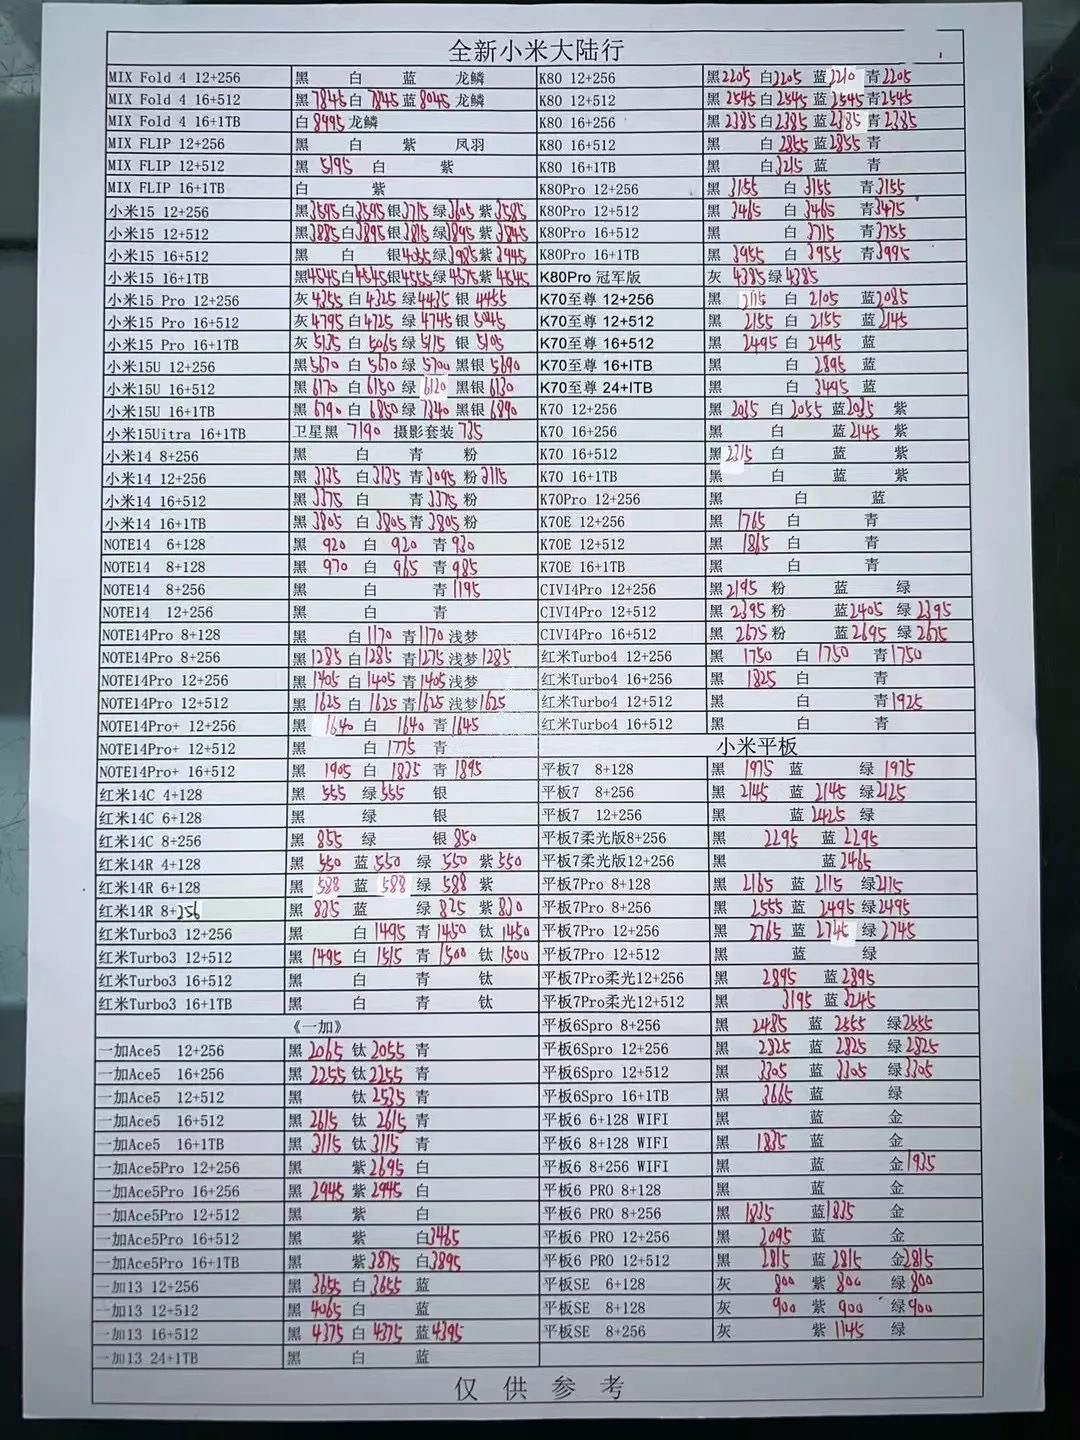 全新小米大陆行
MIX Fold 4 12+256 黑 白 蓝 龙鳞
MIX Fold 4 16+512 黑7845 白7845 蓝8045 龙鳞
MIX Fold 4 16+1TB 白8995 龙鳞
MIX FLIP 12+256 黑 白 紫 凤羽
MIX FLIP 12+512 黑 5195 白 紫
MIX FLIP 16+1TB 白 紫
小米15 12+256 黑3595 白3595 银3715 绿3605 紫3585
小米15 12+512 黑3885 白3895 银3815 绿3895 紫3845
小米15 16+512 黑 白 银4055 绿3985 紫3945
小米15 16+1TB 黑4545 白4545 银4555 绿4575 紫4545
小米15 Pro 12+256 灰4355 白4325 绿4435 银4455
小米15 Pro 16+512 灰4795 白4725 绿4745 银5045
小米15 Pro 16+1TB 灰5135 白5065 绿5115 银5105
小米15U 12+256 黑5670 白5670 绿5700 黑银5690
小米15U 16+512 黑6170 白6150 绿6120 黑银6130
小米15U 16+1TB 黑6790 白6850 绿7340 黑银6890
小米15Uitra 16+1TB 卫星黑 7190 摄影套装 735
小米14 8+256 黑 白 青 粉
小米14 12+256 黑3135 白3125 青3095 粉3115
小米14 16+512 黑3375 白 青3375 粉
小米14 16+1TB 黑3805 白3805 青3805 粉
NOTE14 6+128 黑 920 白 920 青930
NOTE14 8+128 黑 970 白 965 青985
NOTE14 8+256 黑 白 青1195
NOTE14 12+256 黑 白 青
NOTE14Pro 8+128 黑 白1170 青1170 浅梦
NOTE14Pro 8+256 黑1285 白1285 青1275 浅梦1285
NOTE14Pro 12+256 黑1405 白1405 青1405 浅梦
NOTE14Pro 12+512 黑1625 白1625 青1625 浅梦1625
NOTE14Pro+ 12+256 黑 1640 白 1640 青1645
NOTE14Pro+ 12+512 黑 白1775 青
NOTE14Pro+ 16+512 黑 1905 白 1835 青1895
红米14C 4+128 黑 555 绿555 银
红米14C 6+128 黑 绿 银
红米14C 8+256 黑 855 绿 银850
红米14R 4+128 黑 550 蓝550 绿 550 紫550
红米14R 6+128 黑 588 蓝 588 绿 588 紫
红米14R 8+256 黑 835 蓝 绿825 紫830
红米Turbo3 12+256 黑 白1495 青1450 钛1450
红米Turbo3 12+512 黑1495 白1515 青1500 钛1500
红米Turbo3 16+512 黑 白 青 钛
红米Turbo3 16+1TB 黑 白 青 钛
《一加》
一加Ace5 12+256 黑2065 钛2055 青
一加Ace5 16+256 黑2255 钛2255 青
一加Ace5 12+512 黑 钛2535 青
一加Ace5 16+512 黑2615 钛 2615 青
一加Ace5 16+1TB 黑3115 钛3115 青
一加Ace5Pro 12+256 黑 紫2695 白
一加Ace5Pro 16+256 黑2945 紫2945 白
一加Ace5Pro 12+512 黑 紫 白
一加Ace5Pro 16+512 黑 紫 白3465
一加Ace5Pro 16+1TB 黑 紫3875 白3895
一加13 12+256 黑3655 白3655 蓝
一加13 12+512 黑4065 白 蓝
一加13 16+512 黑4375 白4375 蓝4395
一加13 24+1TB 黑 白 蓝
K80 12+256 黑2205 白2205 蓝2210 青2205
K80 12+512 黑2545 白2545 蓝2545 青2545
K80 16+256 黑2385 白2385 蓝2385 青2385
K80 16+512 黑 白2855 蓝2855 青
K80 16+1TB 黑 白3215 蓝 青
K80Pro 12+256 黑 3155 白 3155 青3155
K80Pro 12+512 黑 3465 白 3465 青3475
K80Pro 16+512 黑 白 3715 青3755
K80Pro 16+1TB 黑 3955 白 3955 青3995
K80Pro 冠军版 灰 4385 绿4385
K70至尊 12+256 黑 2115 白 2105 蓝2085
K70至尊 12+512 黑 2155 白 2155 蓝2145
K70至尊 16+512 黑 2495 白 2495 蓝
K70至尊 16+ITB 黑 白 2895 蓝
K70至尊 24+ITB 黑 白 3495 蓝
K70 12+256 黑2035 白2055 蓝2035 紫
K70 16+256 黑 白 蓝2145 紫
K70 16+512 黑2315 白 蓝 紫
K70 16+1TB 黑 白 蓝 紫
K70Pro 12+256 黑 白 蓝
K70E 12+256 黑 1765 白 青
K70E 12+512 黑 1865 白 青
K70E 16+1TB 黑 白 青
CIVI4Pro 12+256 黑2195 粉 蓝 绿
CIVI4Pro 12+512 黑2395 粉 蓝2405 绿2395
CIVI4Pro 16+512 黑2675 粉 蓝2695 绿2675
红米Turbo4 12+256 黑 1750 白1750 青1750
红米Turbo4 16+256 黑 1825 白 青
红米Turbo4 12+512 黑 白 青1925
红米Turbo4 16+512 黑 白 青
小米平板
平板7 8+128 黑 1975 蓝 绿 1975
平板7 8+256 黑 2145 蓝 2145 绿2125
平板7 12+256 黑 蓝2425 绿
平板7柔光版8+256 黑 2295 蓝 2295
平板7柔光版12+256 黑 蓝2465
平板7Pro 8+128 黑 2165 蓝 2115 绿2115
平板7Pro 8+256 黑 2555 蓝 2495 绿2495
平板7Pro 12+256 黑 2765 蓝 2745 绿2745
平板7Pro 12+512 黑 蓝 绿
平板7Pro柔光12+256 黑 2895 蓝2895
平板7Pro柔光12+512 黑 3195 蓝3245
平板6Spro 8+256 黑 2485 蓝 2555 绿2555
平板6Spro 12+256 黑 2825 蓝 2825 绿2825
平板6Spro 12+512 黑 3305 蓝 3305 绿3305
平板6Spro 16+1TB 黑 3665 蓝 绿
平板6 6+128 WIFI 黑 蓝 金
平板6 8+128 WIFI 黑 1835 蓝 金
平板6 8+256 WIFI 黑 蓝 金1935
平板6 PRO 8+128 黑 蓝 金
平板6 PRO 8+256 黑 1835 蓝1835 金
平板6 PRO 12+256 黑 2095 蓝 金
平板6 PRO 12+512 黑 2815 蓝 2815 金2815
平板SE 6+128 灰 800 紫 800 绿800
平板SE 8+128 灰 900 紫 900 绿900
平板SE 8+256 灰 紫 1145 绿
仅供参考